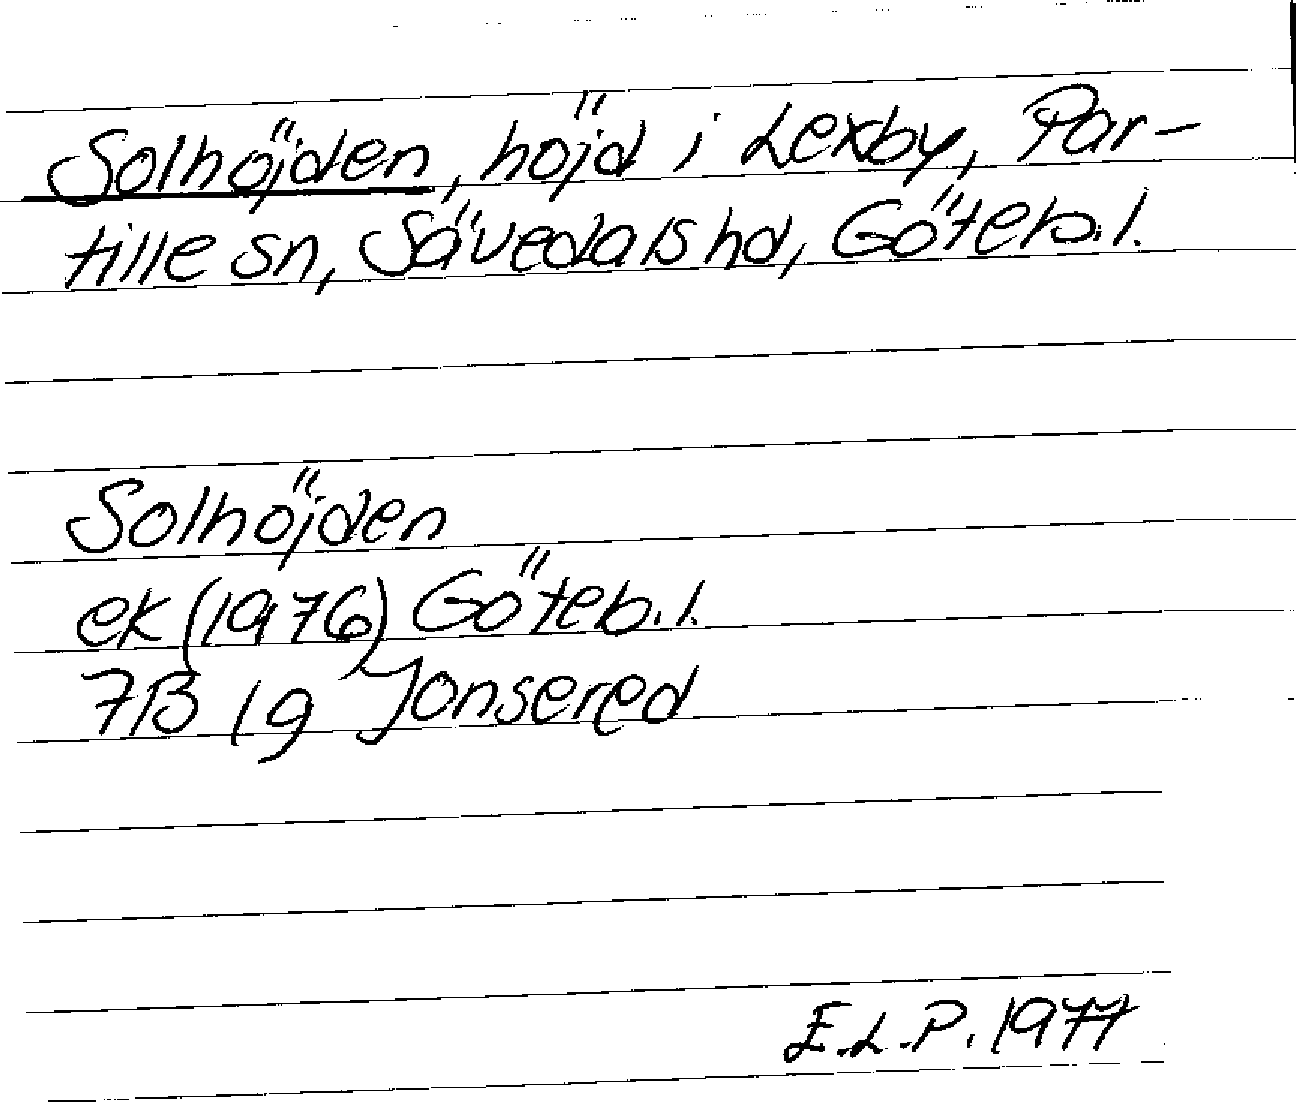 Solhöjden, höjd i Lexby, Par-
tille sn, Sävedals hd, Göteb.l.
Solhöjden
ek (1976) Göteb.l.
7B 1g Jonsered
E.L.P. 1977